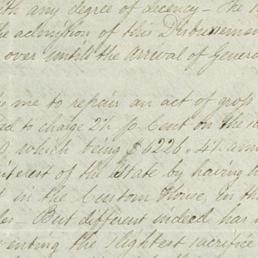 with any degree of decency – the
the admission of this Disbursemen
over until the Arrival of Genera
me to repair an act of gross
to charge 2½ p. Cent on the
which being $6226.41
interest of the State by having
in the Custom House, in th
But different indeed has
the slightest sacrifice